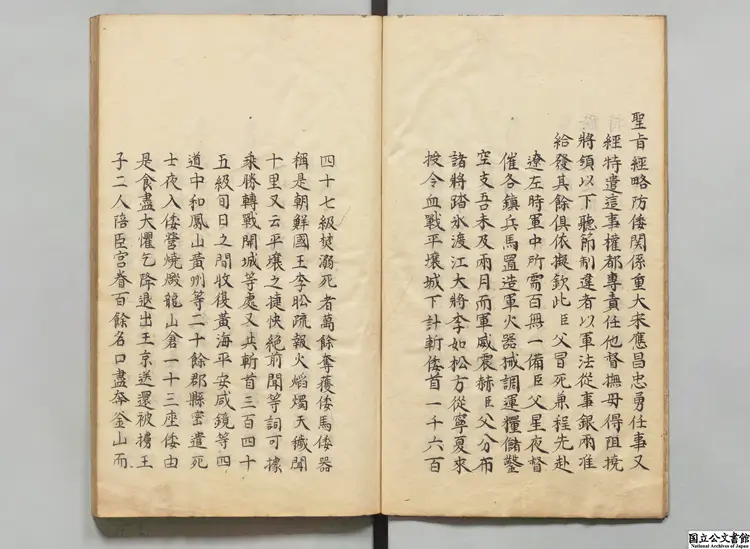 聖旨經略防倭関係重大宋應昌忠勇任事又
經特遣這事權都專責任他督撫毋得阻撓
將領以下聽節制違者以軍法從事銀兩准
給發其餘俱依擬欽此臣父冒死兼程先赴
遼左時軍中所需百無一備臣父星夜督
催各鎮兵馬置造軍火器械調運糧儲鑿
空支吾未及兩月而軍威震赫臣父分布
諸將踏氷渡江大將李如松方從寧夏來
授令血戰平壤城下計斬倭首一千六百
四十七級焚溺死者萬餘奪獲倭馬倭器
稱是朝鮮國王李昖疏報火熖燭天穢聞
十里又云平壤之捷快絶前聞等詞可據
乘勝轉戰開城等處又共斬首三百四十
五級旬日之間收復黃海平安咸鏡等四
道中和鳳山黃州等二十餘郡縣密遣死
士夜入倭營燒厰龍山倉一十三座倭由
是食盡大懼乞降退出王京送還被擄王
子二人陪臣宮眷百餘名口盡奔釜山而
国立公文書館
National Archives of Japan